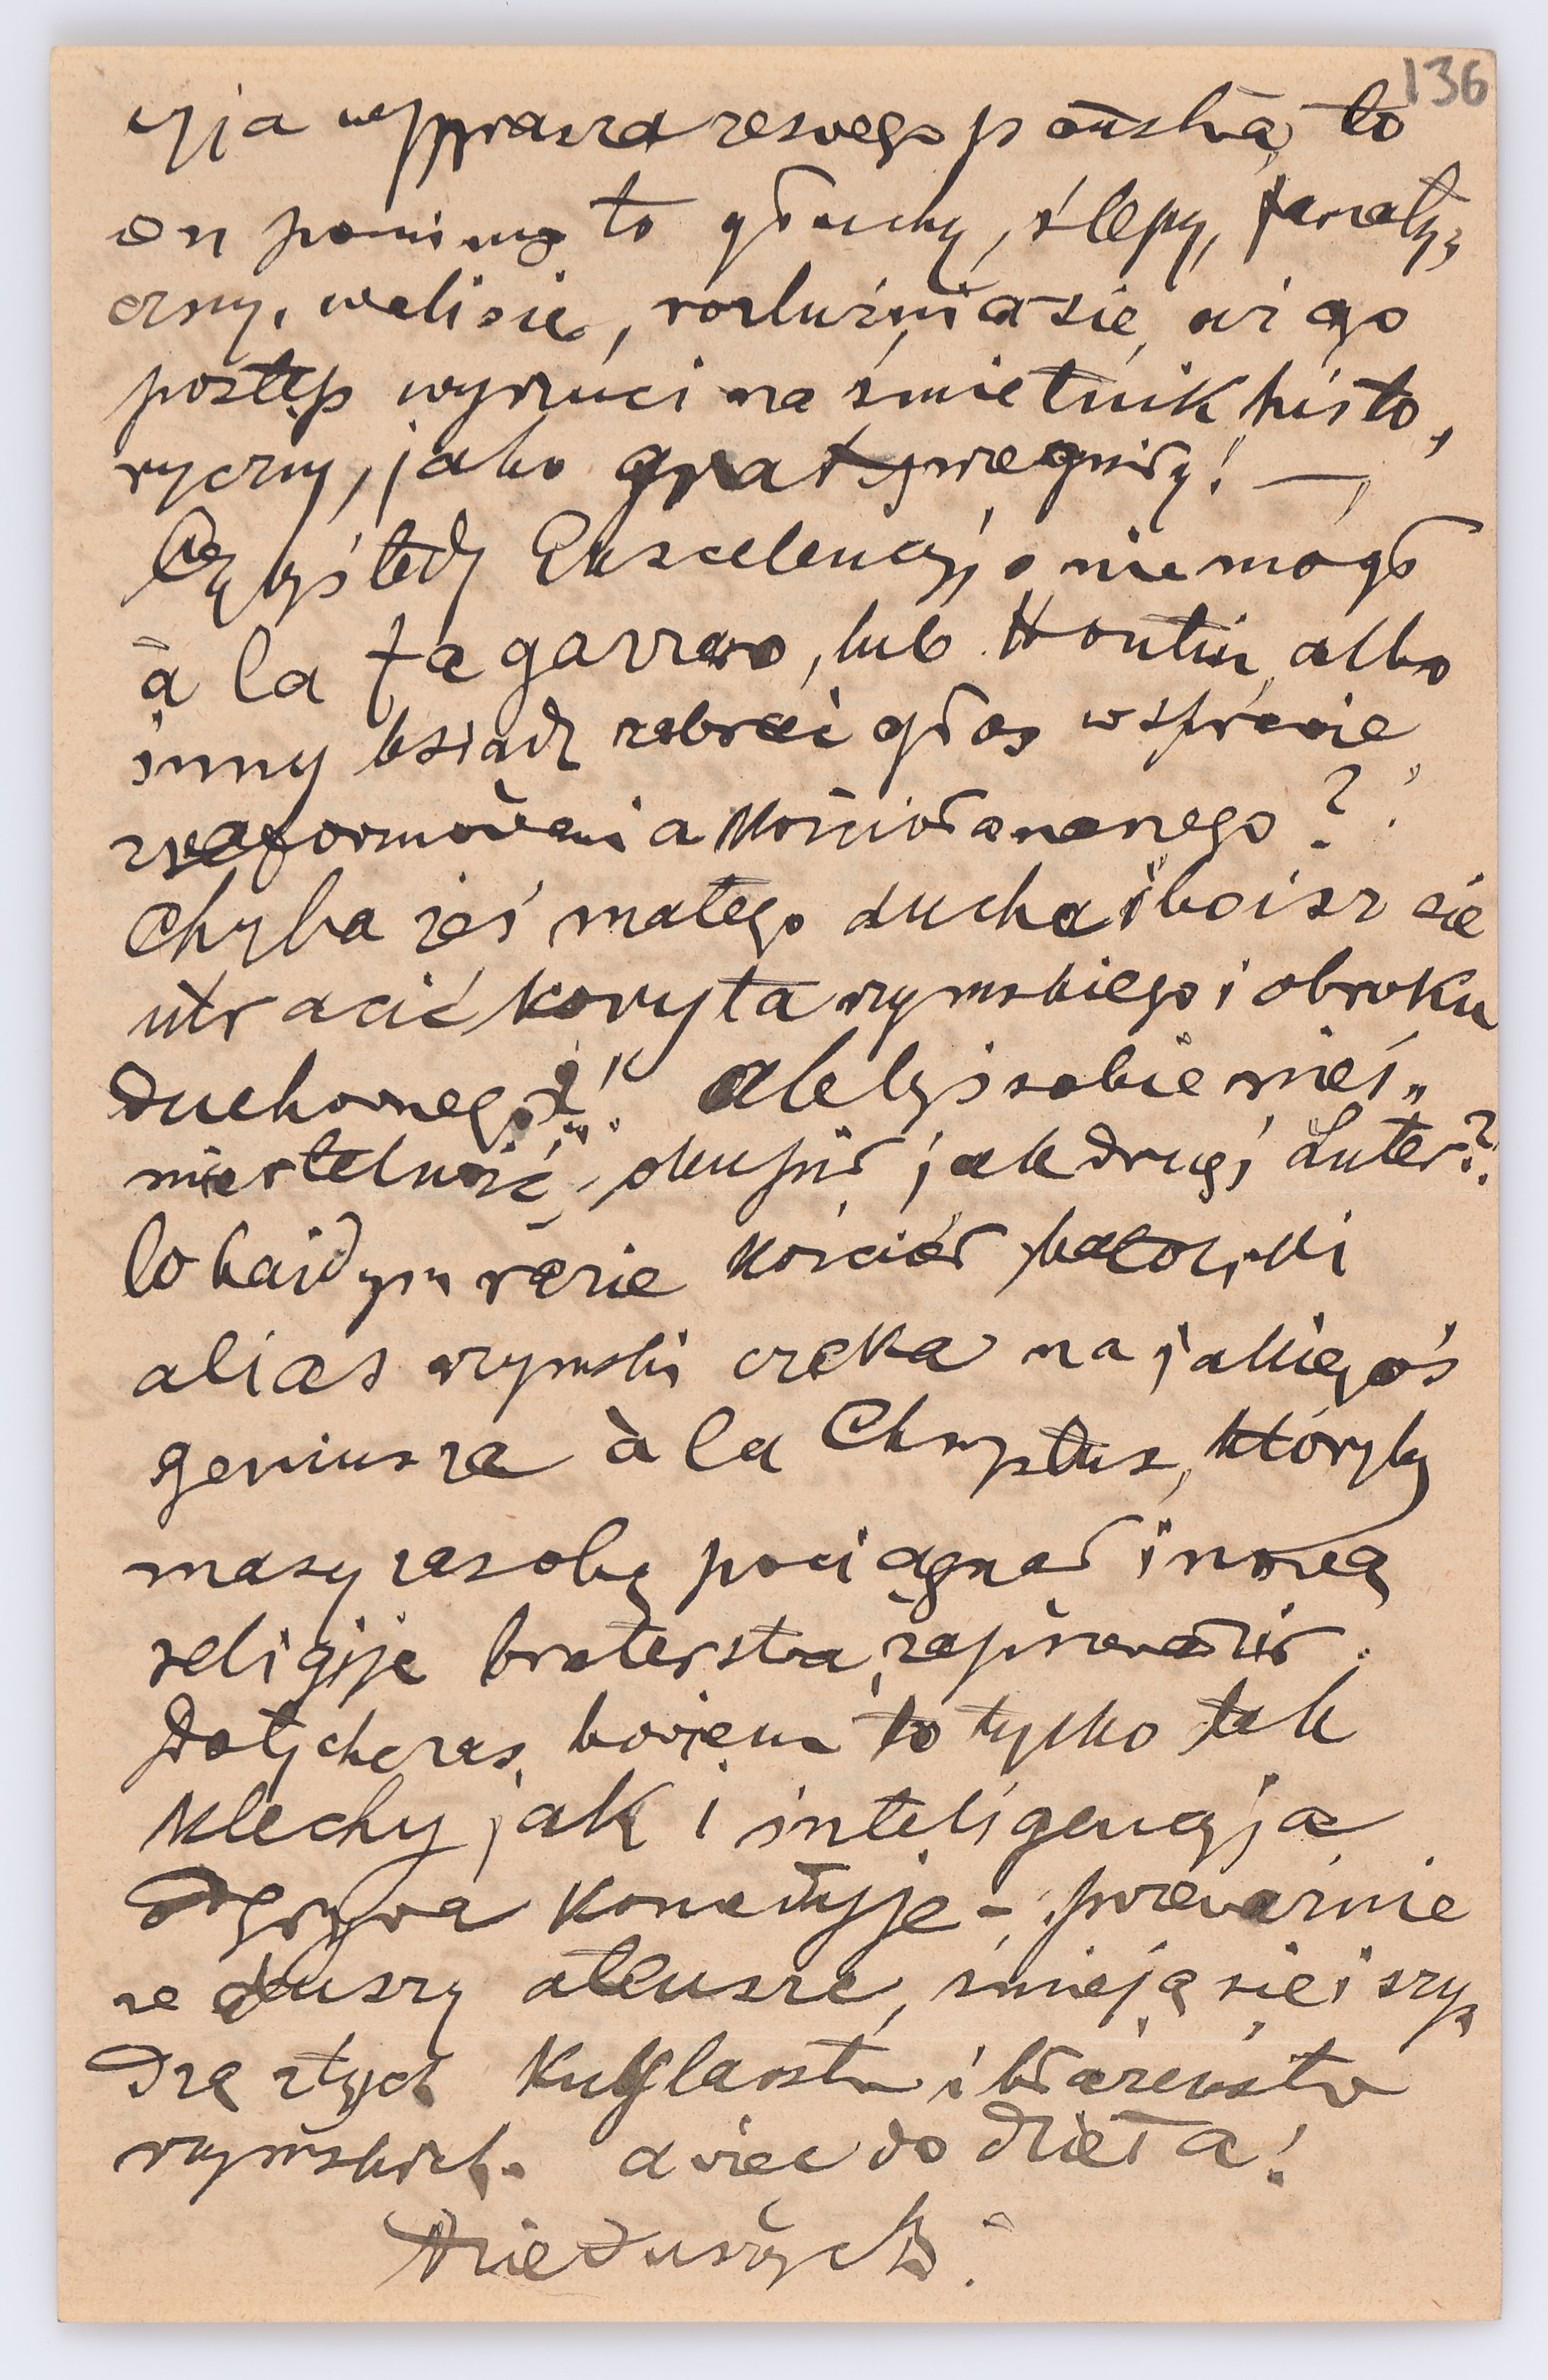 136
cyja wyprasza ze swego państwa, to
on pomimo to głuchy, ślepy, fanaty,
czny, wali się, rozluźnia się, aż go
postęp wyrzuci na śmietnik histo,
ryczny, jako grat przegniły! —
Czybyś tedy Ekscelencyjo nie mógł
à la Fagazzaro, lub Houtin, albo
inny ksiądz zabrać głos w sprawie
zreformowania Kościoła naszego?
Chyba żeś małego ducha i boisz się
utracić koryta rzymskiego i obroku
duchownego?! ale byś sobie nieś„
miertelność okupił jak drugi Luter?
W każdym razie Kościół katolicki
alias rzymski czeka na jakiegoś
geniusza à la Chrystus, któryby
masy za sobą pociągnął i nową
religiję braterstwa zaprowadził.
Dotychczas bowiem to tylko tak
Klechy jak i inteligencyja
odgrywa Komedyje - przeważnie
ze duszy ateusze, śmieją się i szy,
dzą z tych Kuglarstw i błazeństw
rzymskich. a więc do dzieła!